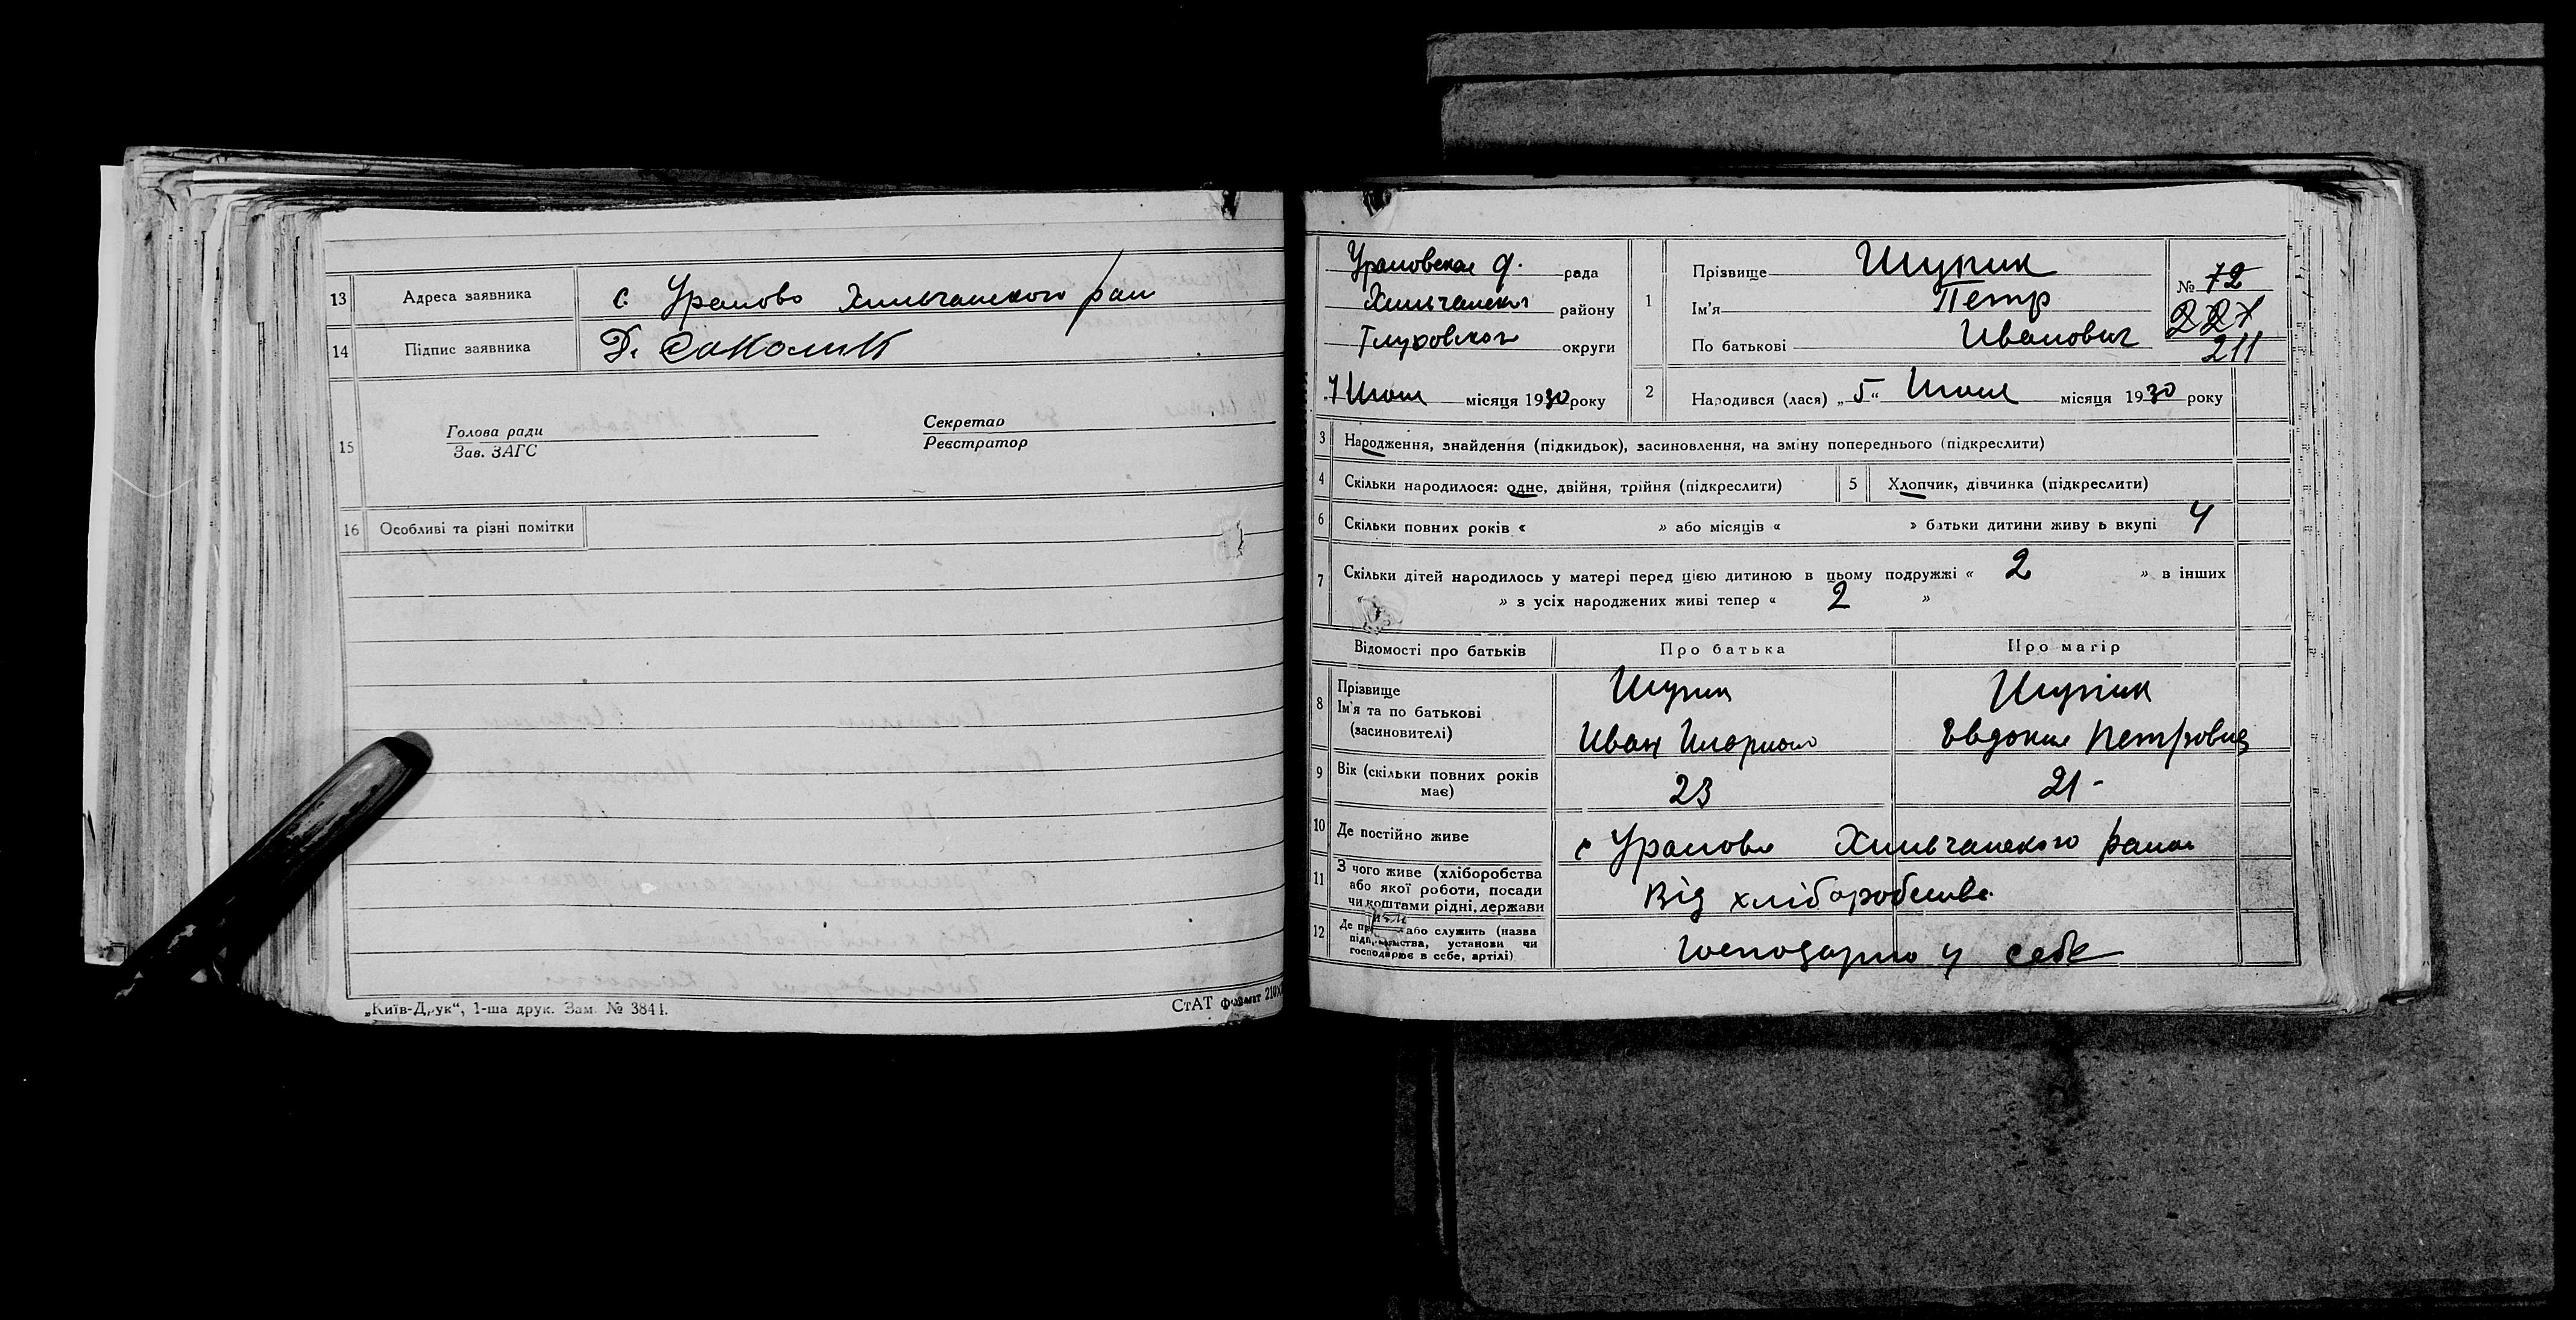 13 Адреса заявника с. Уралово Хильчанского рай
14 Підпис заявника Д. Соколик
15 Голова ради
Зав. ЗАГС
Секретар
Реєстратор
16 Особливі та різні помітки
„Київ-Друк“, 1-ша друк. Зам. № 3841.
СтАТ формат 210
Ураловская рада
Хильчанског району
Глуховског округи
7 Июля місяця 1930 року
1 Прізвище Шупик
Ім'я Петр
По батькові Иванович
№ 72
227
211
2 Народився (лася) „5“ Июля місяця 1930 року
3 Народження, знайдення (підкидьок), засиновлення, на зміну попереднього (підкреслити)
4 Скільки народилося: одне, двійня, трійня (підкреслити) 5 Хлопчик, дівчинка (підкреслити)
6 Скільки повних років « » або місяців « » батьки дитини живу ь вкупі 4
7 Скільки дітей народилось у матері перед цією дитиною в цьому подружжі « 2 » в інших
« » з усіх народжених живі тепер « 2 »
Відомості про батьків Про батька Про матір
8 Прізвище
Ім'я та по батькові
(засиновителі)
Шупик
Иван
Шупік
Евдокия Петровна
9 Вік (скільки повних років
має)
23
21 -
10 Де постійно живе с Уралово Хильчанского района
11 З чого живе (хліборобства
або якої роботи, посади
чи коштами рідні, держави
Від хліборобства
12 або служить (назва
установи чи
господарює в себе, артілі)
господарюю у себе